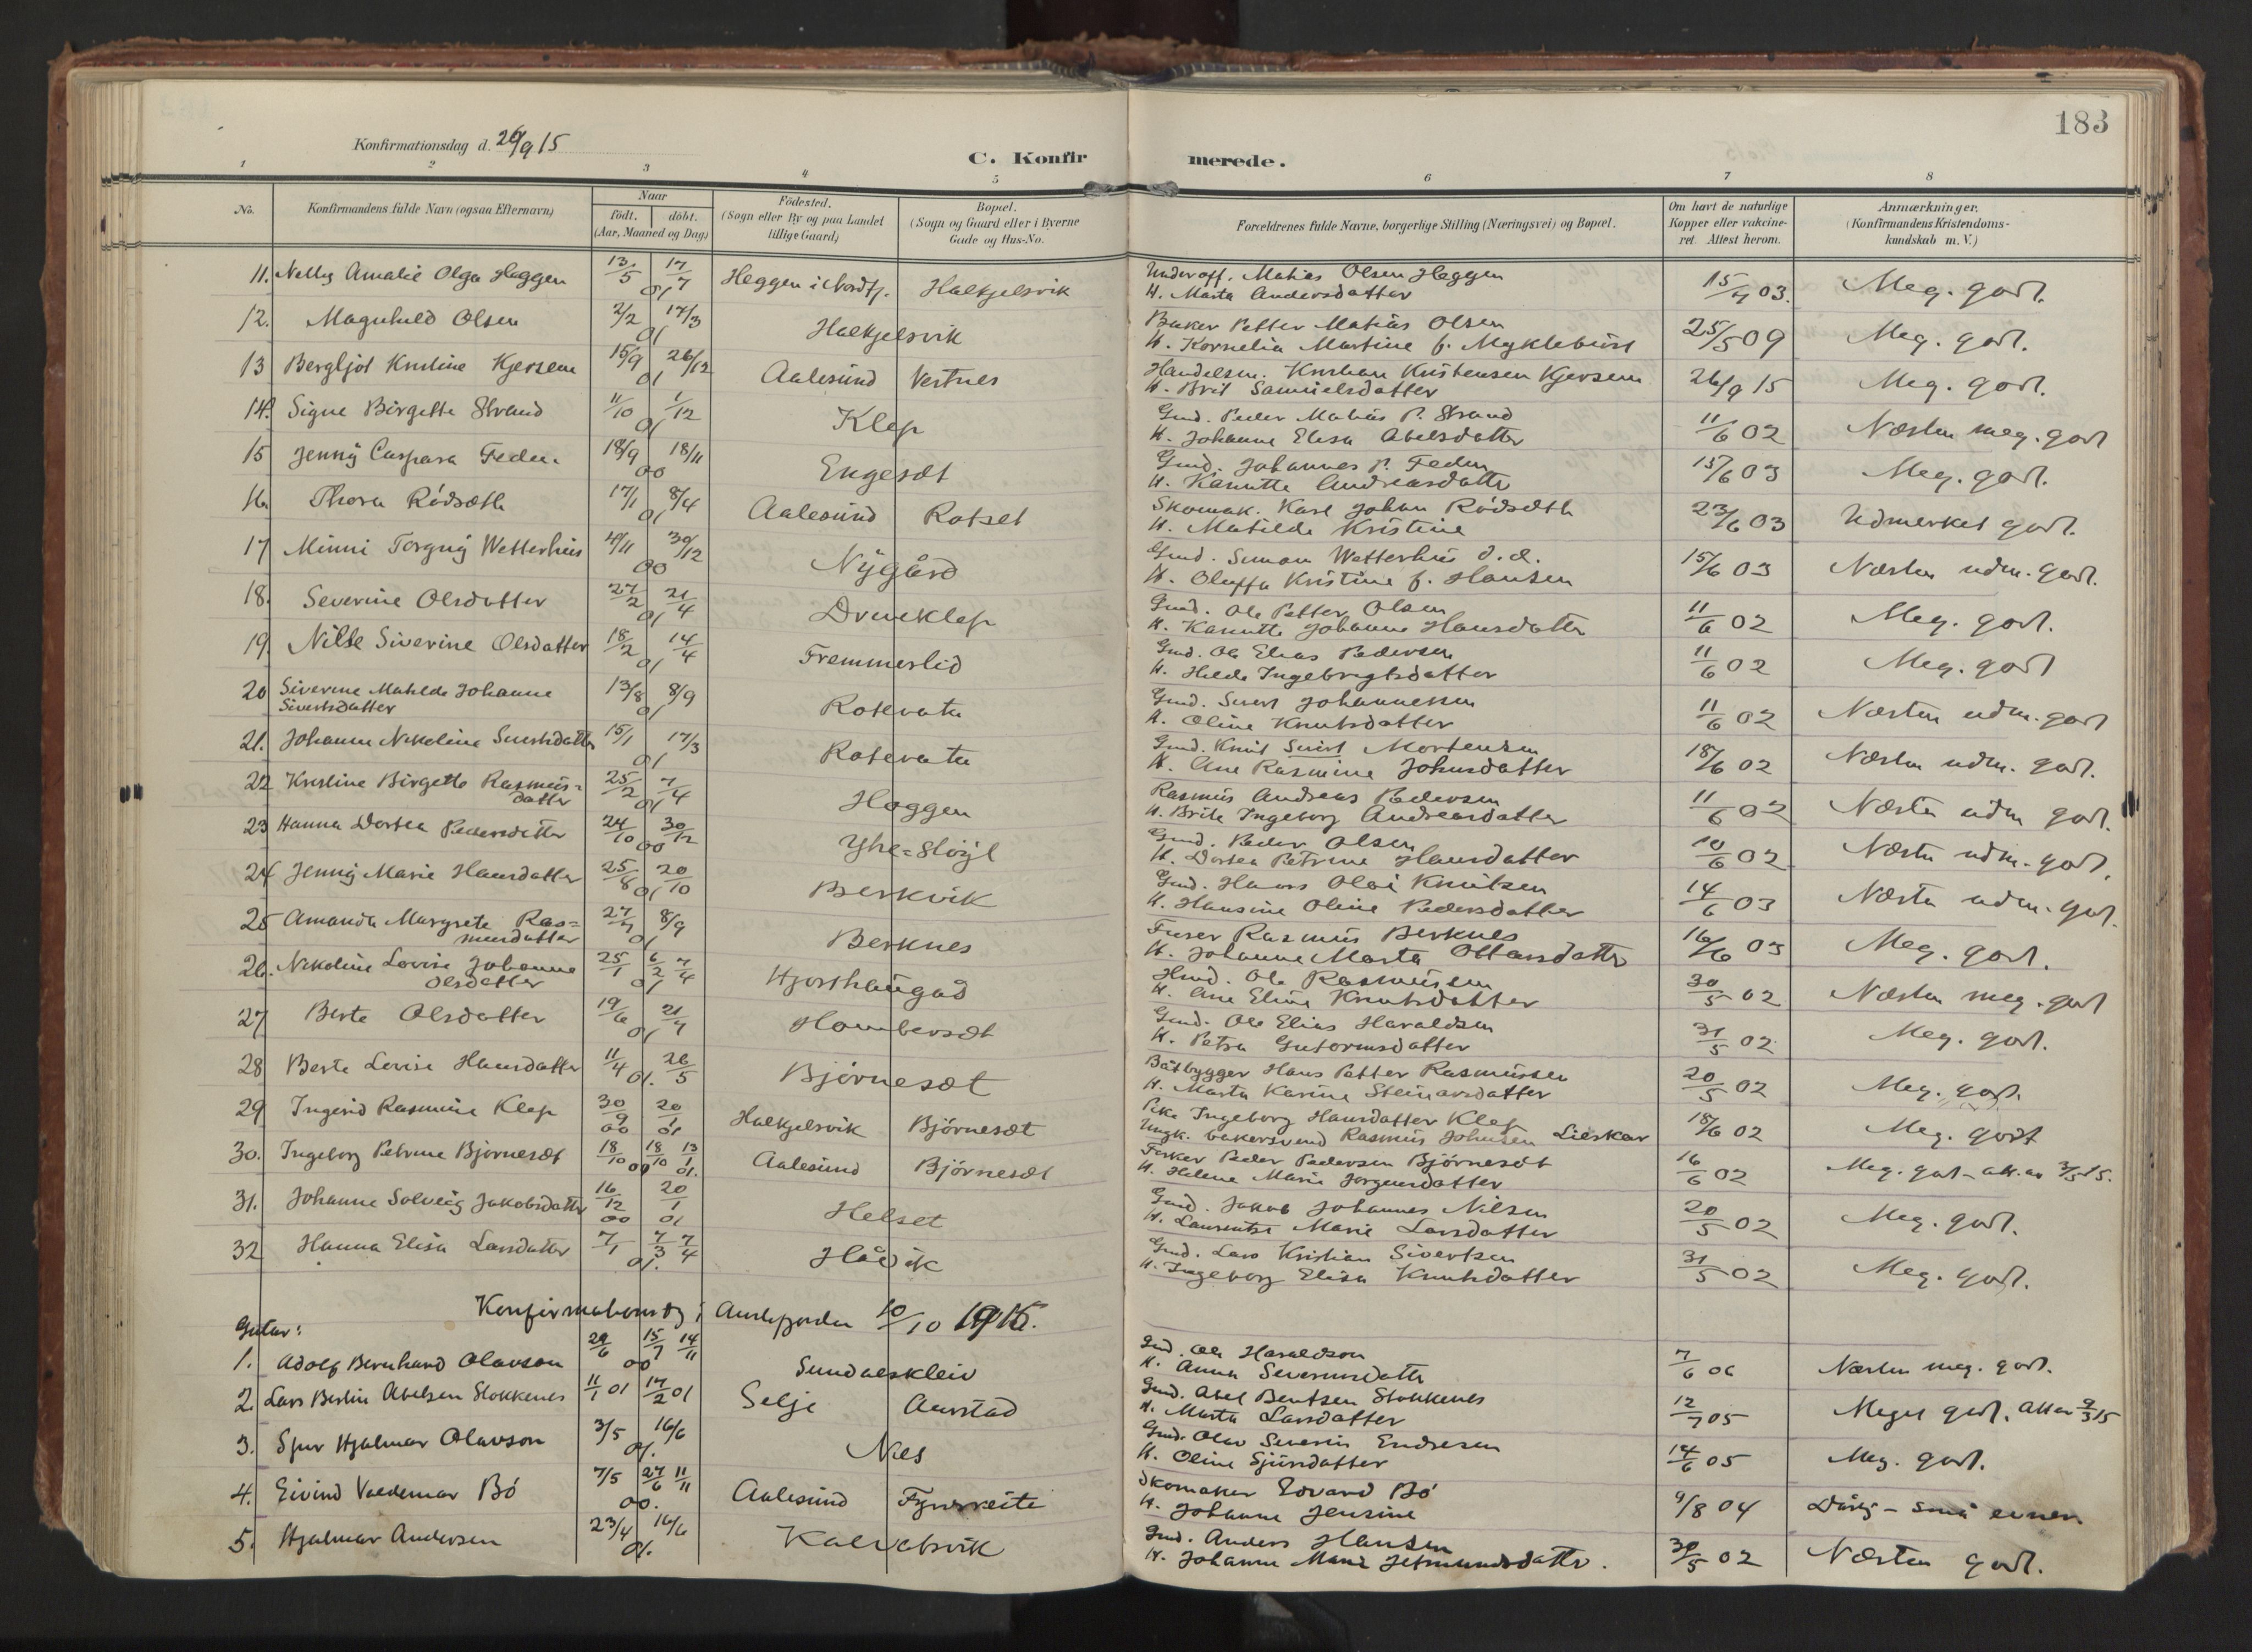 183
Konfirmationsdag d. 26/9 15
C. Konfirmerede.
1 2 3 4 5 6 7 8
No. Konfirmandens fulde Navn (ogsaa Efternavn) Naar födt. döbt. (Aar, Maaned og Dag) Födested. (Sogn eller By og paa Landet tillige Gaard) Bopæl. (Sogn og Gaard eller i Byerne Gade og Hus-No. Forældrenes fulde Navne, borgerlige Stilling (Næringsvei) og Bopæl. Om havt de naturlige Kopper eller vakcineret. Attest herom. Anmærkninger. (Konfirmandens Kristendomskundskab m. V.)
11. Nelly Amalie Olga Heggen 13/5 17/7 01 Heggen i Nordfj. Halkjelsvik Underoff. Matias Olsen Heggen 15/7 03. Meg. godt.
H. Marta Andersdatter
12. Magnhild Olsen 2/2 17/3 01 Halkjelsvik Baker Petter Matias Olsen 25/5 09 Meg. godt.
H. Kornelia Martine f. Myklebust
13 Bergljot Kristine Kjersem 15/9 26/12 01 Aalesund Vestnes Handelsm. Kristian Kristensen Kjersem 26/9 15 Meg. godt.
H. Brit Samuelsdatter
14. Signe Birgitte Strand 11/10 1/12 01 Klep Gmd. Peder Matias P. Strand 11/6 02 Næsten meg. godt
H. Johanne Elisa Abelsdatter
15 Jenny Caspara Feden 18/9 18/11 00 Engesæt Gmd. Johannes P. Feden 15/6 03 Meg. godt.
H. Kanutte Andreasdatter
16. Thora Rödsæth 17/1 8/4 01 Aalesund Rotset Skomak. Karl Johan Rödsæth 23/6 03 Udmerket godt.
H. Matilde Kristine
17 Minni Torgny Wetterhus /11 30/12 00 Nygård Gmd. Simon Wetterhus d.d. 15/6 03 Næsten udm. godt.
H. Oluffa Kristine f. Hansen
18. Severine Olsdatter 27/2 21/4 01 Drueklep Gmd. Ole Petter Olsen 11/6 02 Meg. godt.
H. Kanutte Johanne Hansdatter
19. Nille Siverine Olsdatter 18/2 14/4 01 Fremmerlid Gmd. Ole Elias Pedersen 11/6 02 Meg. godt
H. Hilda Ingebrigtsdatter
20 Siverine Matilde Johanne 13/8 8/9 01 Rotevatn Gmd. Sivert Johannessen 11/6 02 Næsten udm. godt
Sivertsdatter H. Oline Knutsdatter
21. Johanne Nikoline Sivertsdatter 15/1 17/3 01 Rotevatn Gmd. Knut Sivert Mortensen 18/6 02 Næsten udm. godt.
H. Ane Rasmine Johnsdatter
22 Kristine Birgitte Rasmus= 25/2 7/4 01 Heggen Rasmus Andreas Pedersen 11/6 02 Næsten udm godt.
datter H. Brite Ingeborg Andreasdatter
23 Hanna Dortea Pedersdatter 24/10 30/12 00 Yhe=Stöyl Gmd. Peder Olsen 10/6 02 Næsten udm. godt.
H. Dortea Petrine Hansdatter
24 Jenny Marie Hansdatter 25/8 20/10 01 Berkvik Gmd. Hans Olai Knutsen 14/6 03 Næsten udm. godt.
H. Hansine Oline Pedersdatter
25 Amanda Margrete Ras= 27/7 8/9 01 Berknes Furer Rasmus Berknes 16/6 03 Meg. godt.
musdatter H. Johanne Marta Ottarsdatter
26. Nikoline Lovise Johanne 25/1 6/2 7/4 01 Hjorthaugad Hmd. Ole Rasmussen 30/5 02 Næsten meg. godt
Olsdatter H. Ane Eline Knutsdatter
27 Berte Olsdatter 19/6 21/7 01 Hombersæt Gmd. Ole Elias Haraldsen 31/5 02 Meg. godt.
H. Petra Gutormsdatter
28 Berte Lovise Hansdatter 11/4 26/5 01. Björnesæt Båtbygger Hans Petter Rasmussen 20/5 02 Meg. godt.
H. Marta Karine Steinarsdatter
29 Ingerid Rasmine Klep 30/9 00 20/1 01 Halkjelsvik Björnesæt Pike Ingeborg Hansdatter Klep 18/6 02 Meg. godt
Ungk. bakersvend Rasmus Johnsen Lieskar
30. Ingeborg Petrine Björnesæt 18/10 00 18/10 13/1 01. Aalesund Björnesæt Fisker Peder Pedersen Björnesæt 16/6 02 Meg. godt - att. av 3/5 15.
H. Helene Marie Jörgensdatter
31. Johanne Solveig Jakobsdatter 16/12 00 20/1 01 Helset Gmd. Jakob Johannes Nilsen 20/5 02 Meg. godt.
H. Laurentse Marie Larsdatter
32 Hanna Elisa Larsdatter 7/1 7/3 7/4 01. Håvik Gmd. Lars Kristian Sivertsen 31/5 02 Meg. godt.
H. Ingeborg Elisa Knutsdatter
Konfirmationsdg i Austefjorden 10/10 1915.
Gutar:
1. Adolf Bernhard Olavson 29/6 15/7 14/11 00 Sundalskleiv Gmd. Ole Haraldson 7/6 06 Næsten meg. godt.
H. Anna Severinsdatter
2. Lars Bertin Abelsen Stokkenes 11/1 01 17/2 01 Selje Aurstad Gmd. Abel Bentsen Stokkenes 12/7 05 Meget godt. att av 2/3 15
H. Marta Larsdatter
3. Sjur Hjalmar Olavson 3/5 16/6 01. Nes Gmd. Olav Severin Endresen 14/6 05 Meg. godt.
H. Oline Sjursdatter
4. Eivind Valdemar Bö 7/5 27/6 11/11 00. Aalesund Fyrskeite Skomaker Edvard Bö 9/8 04 Dårlig - små evner
H. Johanne Jensine
5. Hjalmar Andersen 23/4 16/6 01. Kalvatsvik Gmd. Anders Hansen 30/5 02 Næsten godt.
H. Johanne Marie Jetmundsdatter.